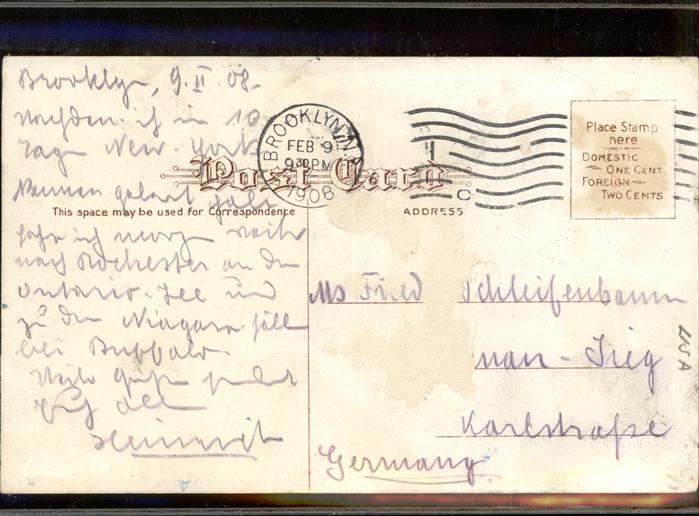 Brooklyn, 9. II. 08.
Nachdem ich in 10
Tagen New York
kennen gelernt habe
fahre ich morg. weiter
nach Rochester an den
Ontario-See und
zu den Niagara-fällen
bei Buffalo.
Viele Grüße
Euch allen
Heinrich
BROOKLYN, N.Y.
FEB 9
9 30 PM
1908
Post Card
This space may be used for Correspondence
ADDRESS
C
Place Stamp
here
DOMESTIC
ONE CENT
FOREIGN
TWO CENTS
Schleifenbaum
Karlstraße
Germany
USA